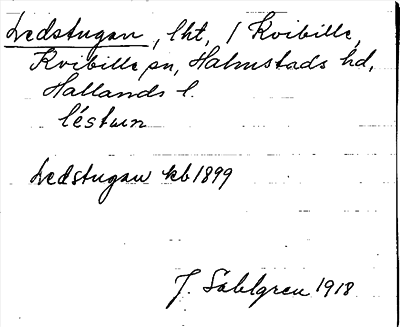 Ledstugan, lht, / Kvibille,
Kvibille sn, Halmstads hd,
Hallands l.
léstun
Ledstugan kb 1899
J. Sahlgren 1918